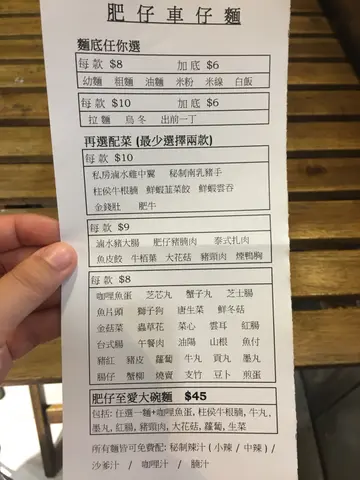 肥仔車仔麵
麵底任你選
每款 $8 加底 $6
幼麵 粗麵 油麵 米粉 米線 白飯
每款 $10 加底 $6
拉麵 烏冬 出前一丁
再選配菜 (最少選擇兩款)
每款 $10
私房滷水雞中翼 秘制南乳豬手
柱侯牛根腩 鮮蝦韮菜餃 鮮蝦雲吞
金錢肚 肥牛
每款 $9
滷水豬大腸 肥仔豬腩肉 泰式扎肉
魚皮餃 牛栢葉 大花菇 豬頸肉 煙鴨胸
每款 $8
咖哩魚蛋 芝芯丸 蟹子丸 芝士腸
魚片頭 獅子狗 唐生菜 鮮冬菇
金菇菜 蟲草花 菜心 雲耳 紅腸
台式腸 午餐肉 油陽 山根 魚付
豬紅 豬皮 蘿蔔 牛丸 貢丸 墨丸
腸仔 蟹柳 燒賣 支竹 豆卜 煎蛋
肥仔至愛大碗麵 $45
包括: 任選一麵+咖哩魚蛋, 柱侯牛根腩, 牛丸,
墨丸, 紅腸, 豬頸肉, 大花菇, 蘿蔔, 生菜
所有麵皆可免費配: 秘制辣汁 ( 小辣 / 中辣 ) /
沙爹汁 / 咖哩汁 / 腩汁